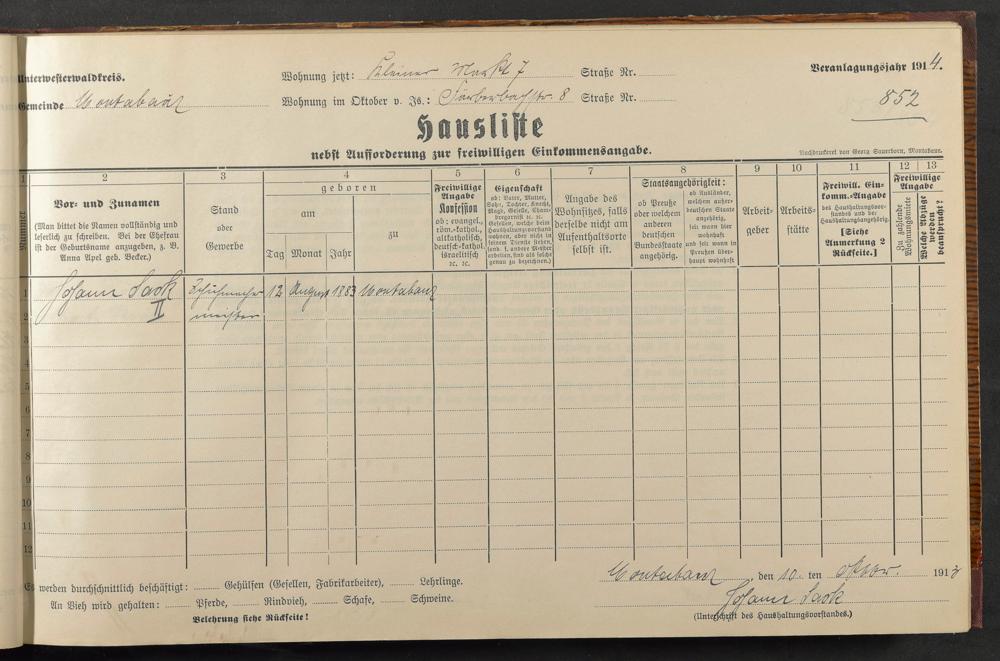 Unterwesterwaldkreis.
Wohnung jetzt: Kleiner Markt 7 Straße Nr.
Veranlagungsjahr 1914.
Gemeinde Montabaur
Wohnung im Oktober v. Js.: Sauerbachstr. 8 Straße Nr.
852
Hausliste
nebst Aufforderung zur freiwilligen Einkommensangabe.
Buchdruckerei von Georg Sauerborn, Montabaur.
1 2 3 4 5 6 7 8 9 10 11 12 13
Nummer
Vor- und Zunamen
(Man bittet die Namen vollständig und
leserlich zu schreiben. Bei der Ehefrau
ist der Geburtsname anzugeben, z. B.
Anna Apel geb. Becker.)
Stand
oder
Gewerbe
geboren
am
Tag Monat Jahr
zu
Freiwillige
Angabe
Konfession
ob: evangel.,
röm.-kathol.,
altkatholisch,
deutsch-kathol.
israelitisch
ꝛc. ꝛc.
Eigenschaft
ob: Vater, Mutter,
Sohn, Tochter, Knecht,
Magd, Geselle, Cham-
bregarnist ꝛc. ꝛc.
Gesellen, welche beim
Haushaltungsvorstand
wohnen, aber nicht in
seinem Dienste stehen,
und f. andere Meister
arbeiten, sind als solche
genau zu bezeichnen.)
Angabe des
Wohnsitzes, falls
derselbe nicht am
Aufenthaltsorte
selbst ist.
Staatsangehörigkeit:
ob Preuße
oder welchem
anderen
deutschen
Bundesstaate
angehörig.
ob Ausländer,
welchem außer-
deutschen Staate
angehörig,
seit wann hier
wohnhaft
und seit wann in
Preußen über-
haupt wohnhaft
Arbeit-
geber
Arbeits-
stätte
Freiwill. Ein-
komm.-Angabe
des Haushaltungsvor-
standes und der
Haushaltungsangehörig.
[Siehe
Anmerkung 2
Rückseite.]
Freiwillige
Angabe
Zu zahlende
Wohnungsmiete
Welche Abzüge
werden
beansprucht?
1 Johann Sack Schuhmacher 12 August 1883 Montabaur
2 II meister
3
4
5
6
7
8
9
10
11
12
Es werden durchschnittlich beschäftigt: Gehülfen (Gesellen, Fabrikarbeiter), Lehrlinge.
Montabaur, den 10. ten Oktbr. 1913
An Vieh wird gehalten: Pferde, Rindvieh, Schafe, Schweine.
Johann Sack
Belehrung siehe Rückseite!
(Unterschrift des Haushaltungsvorstandes.)